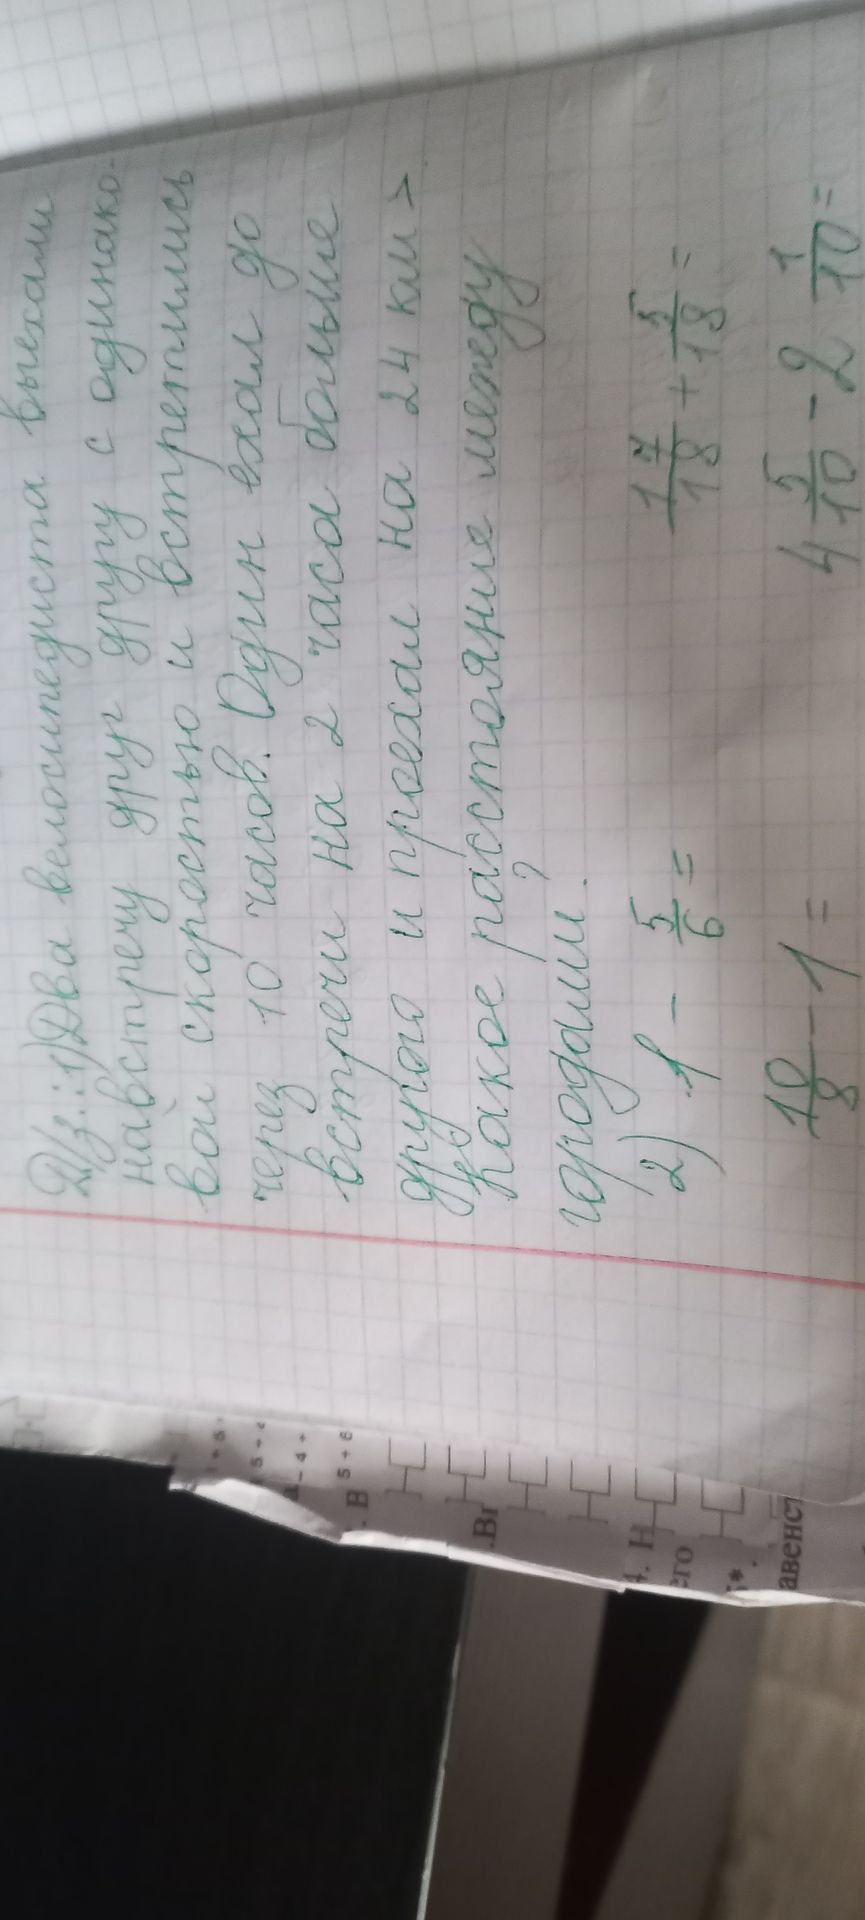 Д/з.: 1) Два велосипедиста выехали
навстречу друг другу с одинако-
вой скоростью и встретились
через 10 часов. Один ехал до
встречи на 2 часа больше
другого и проехал на 24 км >
Какое расстояние между
городами?
2) 1 - 5/6 = 17/18 + 5/18 =
10/8 - 1 = 4 5/10 - 2 1/10 =
5 + 6
В
.Вг
4. Н
его
авенст